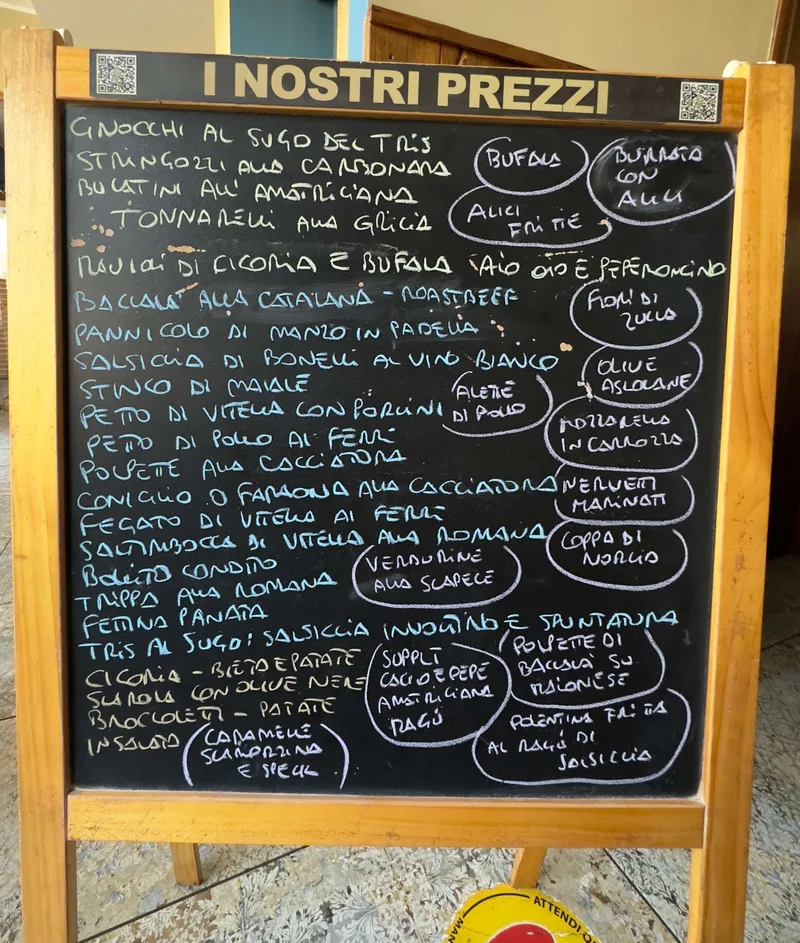 I NOSTRI PREZZI
GNOCCHI AL SUGO DEL TRIS
STRINGOZZI ALLA CARBONARA
BUCATINI ALL' AMATRICIANA
TONNARELLI ALLA GRICIA
BUFALA
BURRATA
CON
ALICI
ALICI
FRITTE
RAVIOLI DI CICORIA E BUFALA AGLIO OLIO E PEPERONCINO
BACCALA' ALLA CATALANA - ROASTBEEF
PANNICOLO DI MANZO IN PADELLA
SALSICCIA DI BONELLI AL VINO BIANCO
STINCO DI MAIALE
PETTO DI VITELLA CON PORCINI
PETTO DI POLLO AI FERRI
POLPETTE ALLA CACCIATORA
CONIGLIO O FARAONA ALLA CACCIATORA
FEGATO DI VITELLA AI FERRI
SALTIMBOCCA DI VITELLA ALLA ROMANA
BOLLITO CONDITO
TRIPPA ALLA ROMANA
FETTINA PANATA
TRIS AL SUGO: SALSICCIA INVOLTINO E SPUNTATURA
FIORI DI
ZUCCA
OLIVE
ASCOLANE
ALETTE
DI POLLO
MOZZARELLA
IN CARROZZA
NERVETTI
MARINATI
COPPA DI
NORCIA
VERDURINE
ALLA SCAPECE
CICORIA - BIETA E PATATE
SCAROLA CON OLIVE NERE
BROCCOLETTI - PATATE
INSALATA
SUPPLI
CACIO E PEPE
AMATRICIANA
RAGÙ
POLPETTE DI
BACCALÀ SU
MAIONESE
CARAMELLE
SCAMORZINA
E SPECK
POLENTINA FRITTA
AL RAGÙ DI
SALSICCIA
ATTENDI